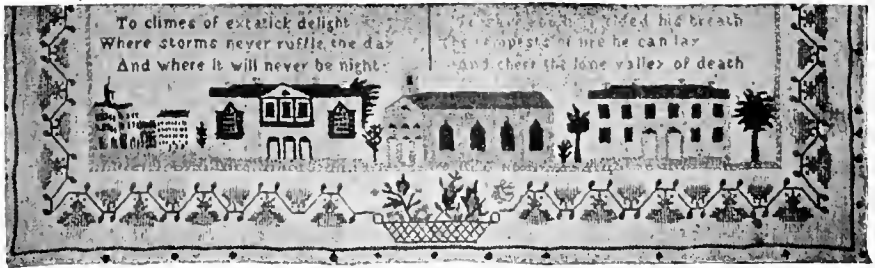 To climes of extatick delight
Where storms never ruffle the day
And where it will never be night
his breath
he can lay
And cheer the lone valley of death